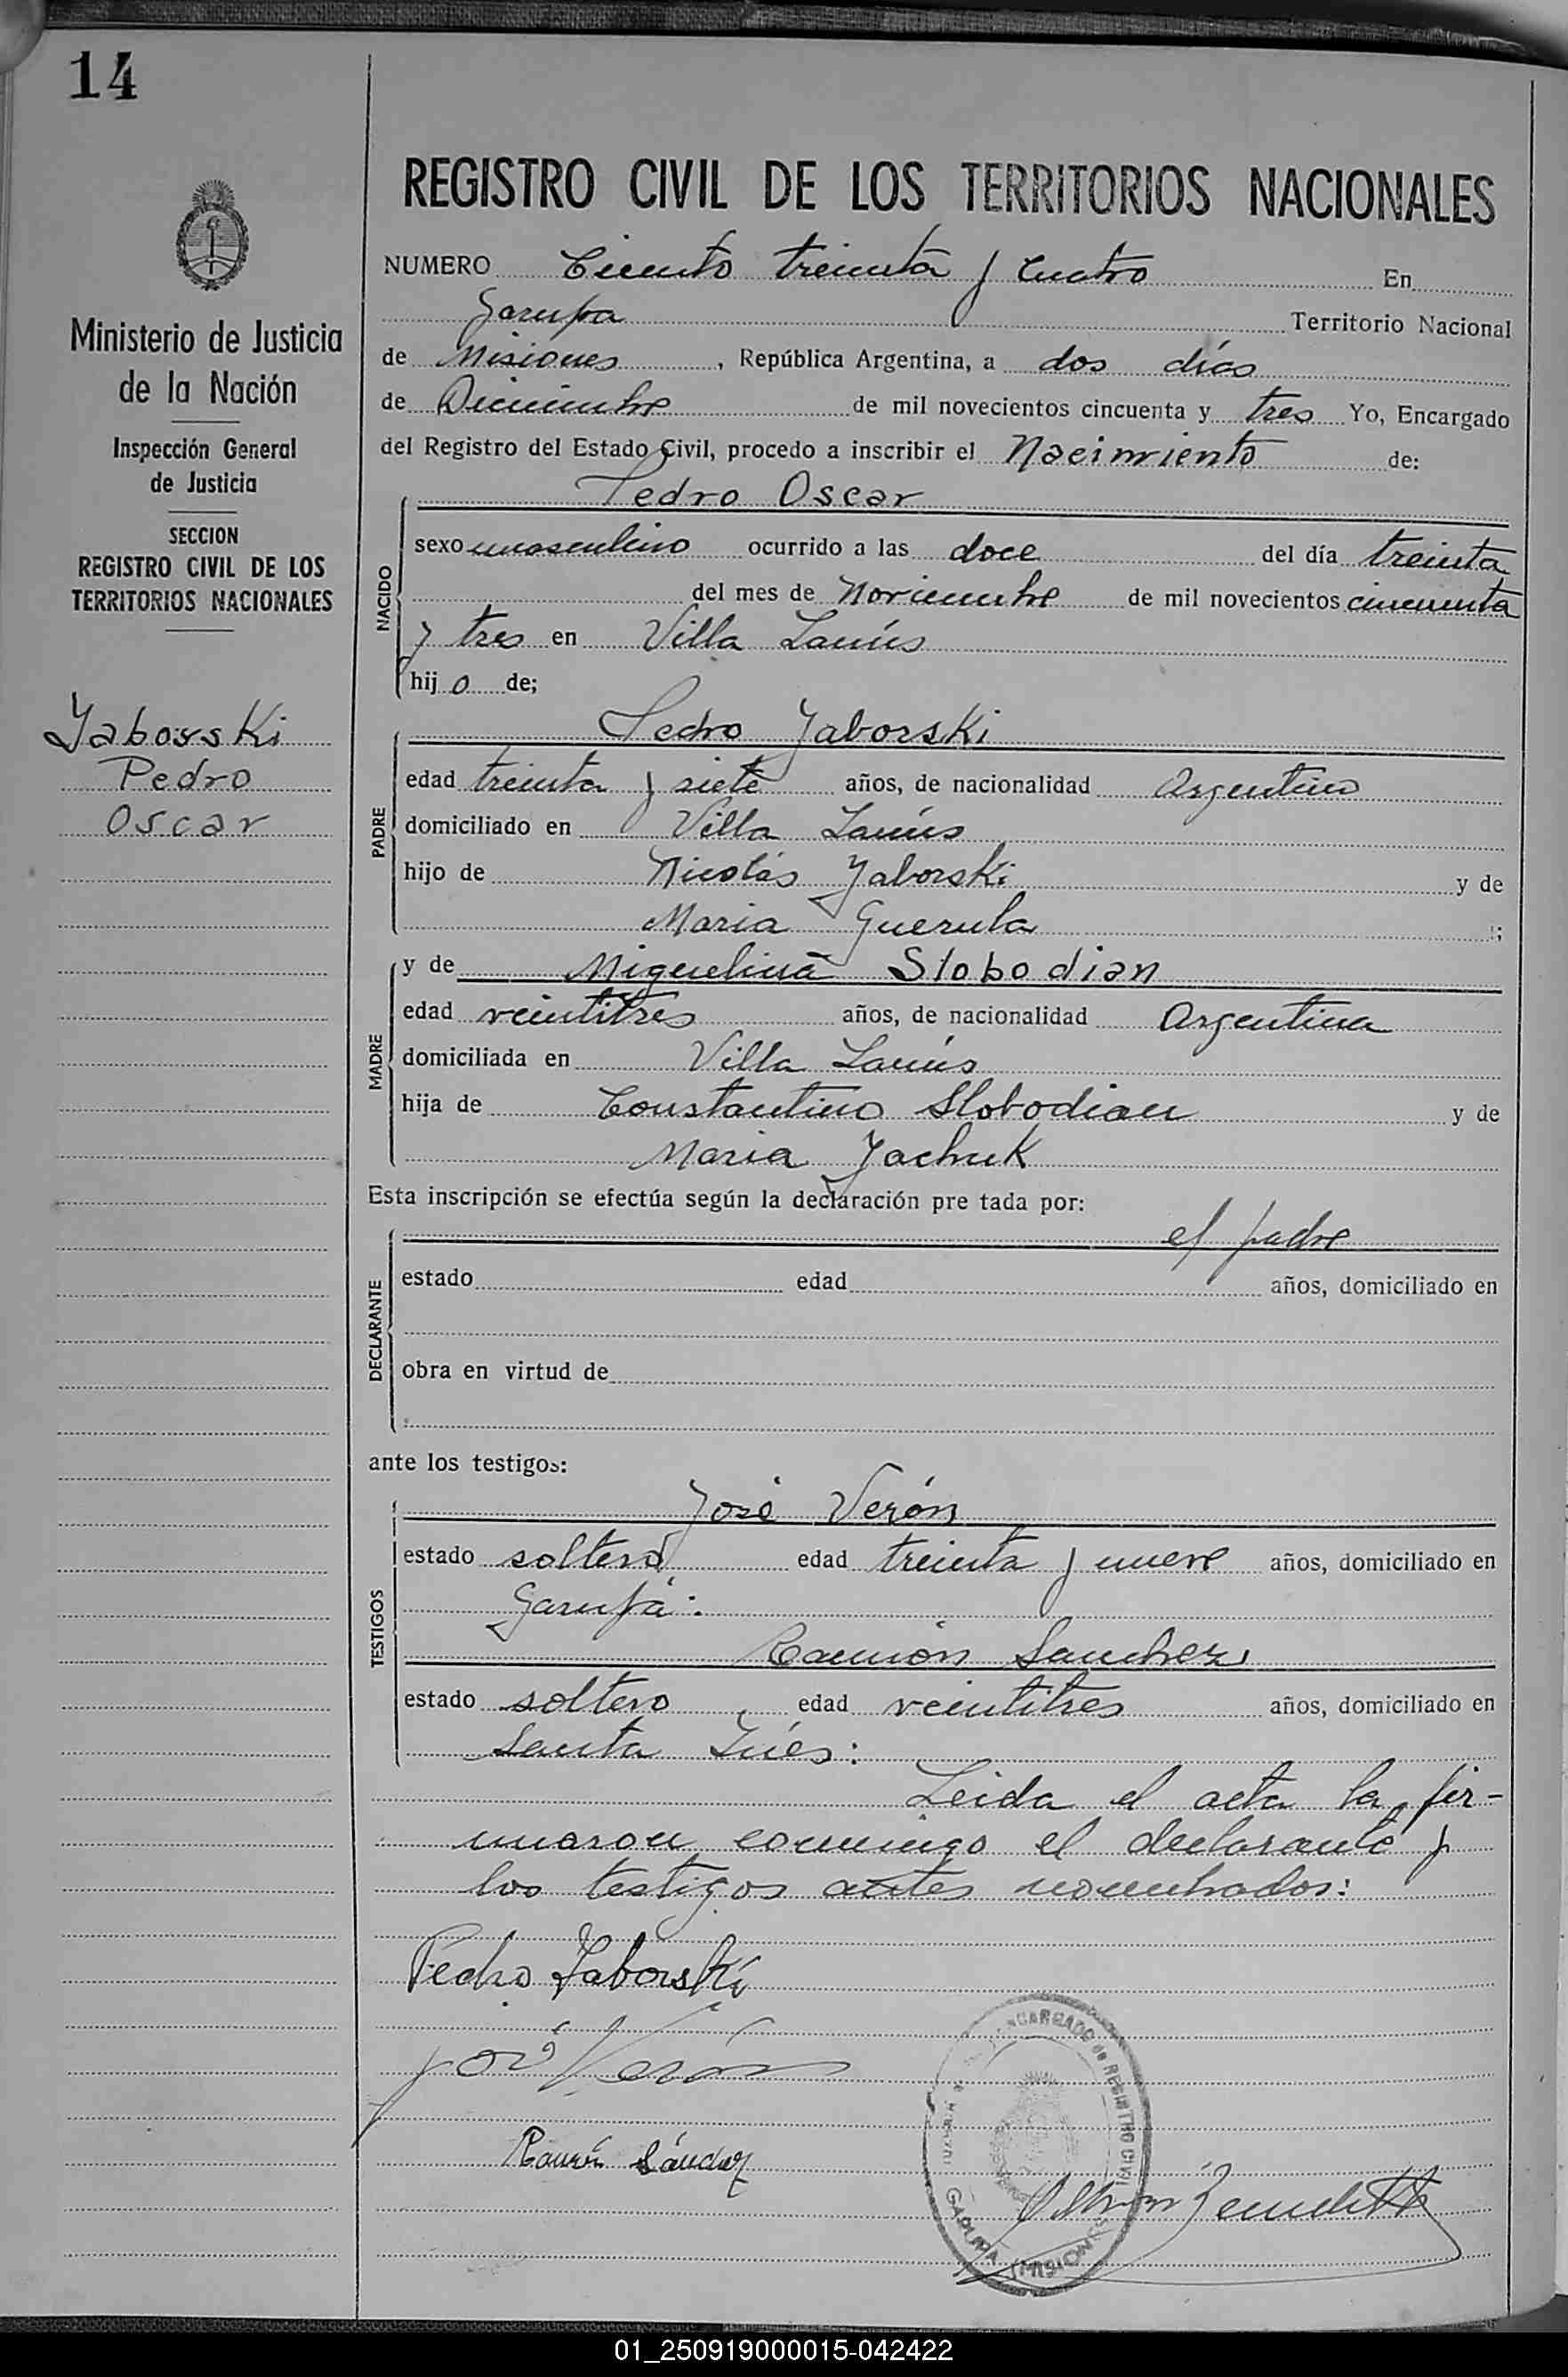 14
Ministerio de Justicia
de la Nación
Inspección General
de Justicia
SECCION
REGISTRO CIVIL DE LOS
TERRITORIOS NACIONALES
Yaborski
Pedro
Oscar
REGISTRO CIVIL DE LOS TERRITORIOS NACIONALES
NUMERO Ciento treinta y cuatro En
Garupa Territorio Nacional
de Misiones, República Argentina, a dos días
de Diciembre de mil novecientos cincuenta y tres Yo, Encargado
del Registro del Estado Civil, procedo a inscribir el Nacimiento de:
Pedro Oscar
NACIDO
sexo masculino ocurrido a las doce del día treinta
del mes de Noviembre de mil novecientos cincuenta
y tres en Villa Lanús
hijo de;
Pedro Yaborski
PADRE
edad treinta y siete años, de nacionalidad Argentino
domiciliado en Villa Lanús
hijo de Nicolás Yaborski y de
Maria Guerula;
MADRE
y de Miguelina Slobodian
edad veintitres años, de nacionalidad Argentina
domiciliada en Villa Lanús
hija de Constantino Slobodian y de
Maria Yachuk
Esta inscripción se efectúa según la declaración pre tada por:
el padre
DECLARANTE
estado edad años, domiciliado en
obra en virtud de
ante los testigos:
José Verón
TESTIGOS
estado soltero edad treinta y nueve años, domiciliado en
Garupá:
Ramón Sanchez
estado soltero edad veintitres años, domiciliado en
Santa Inés:
Leida el acta la fir-
maron conmigo el declarante y
los testigos antes nombrados:
Pedro Yaborski
José Verón
Ramón Sánchez
ENCARGADO de REGISTRO CIVIL
GARUPA (MISIONES)